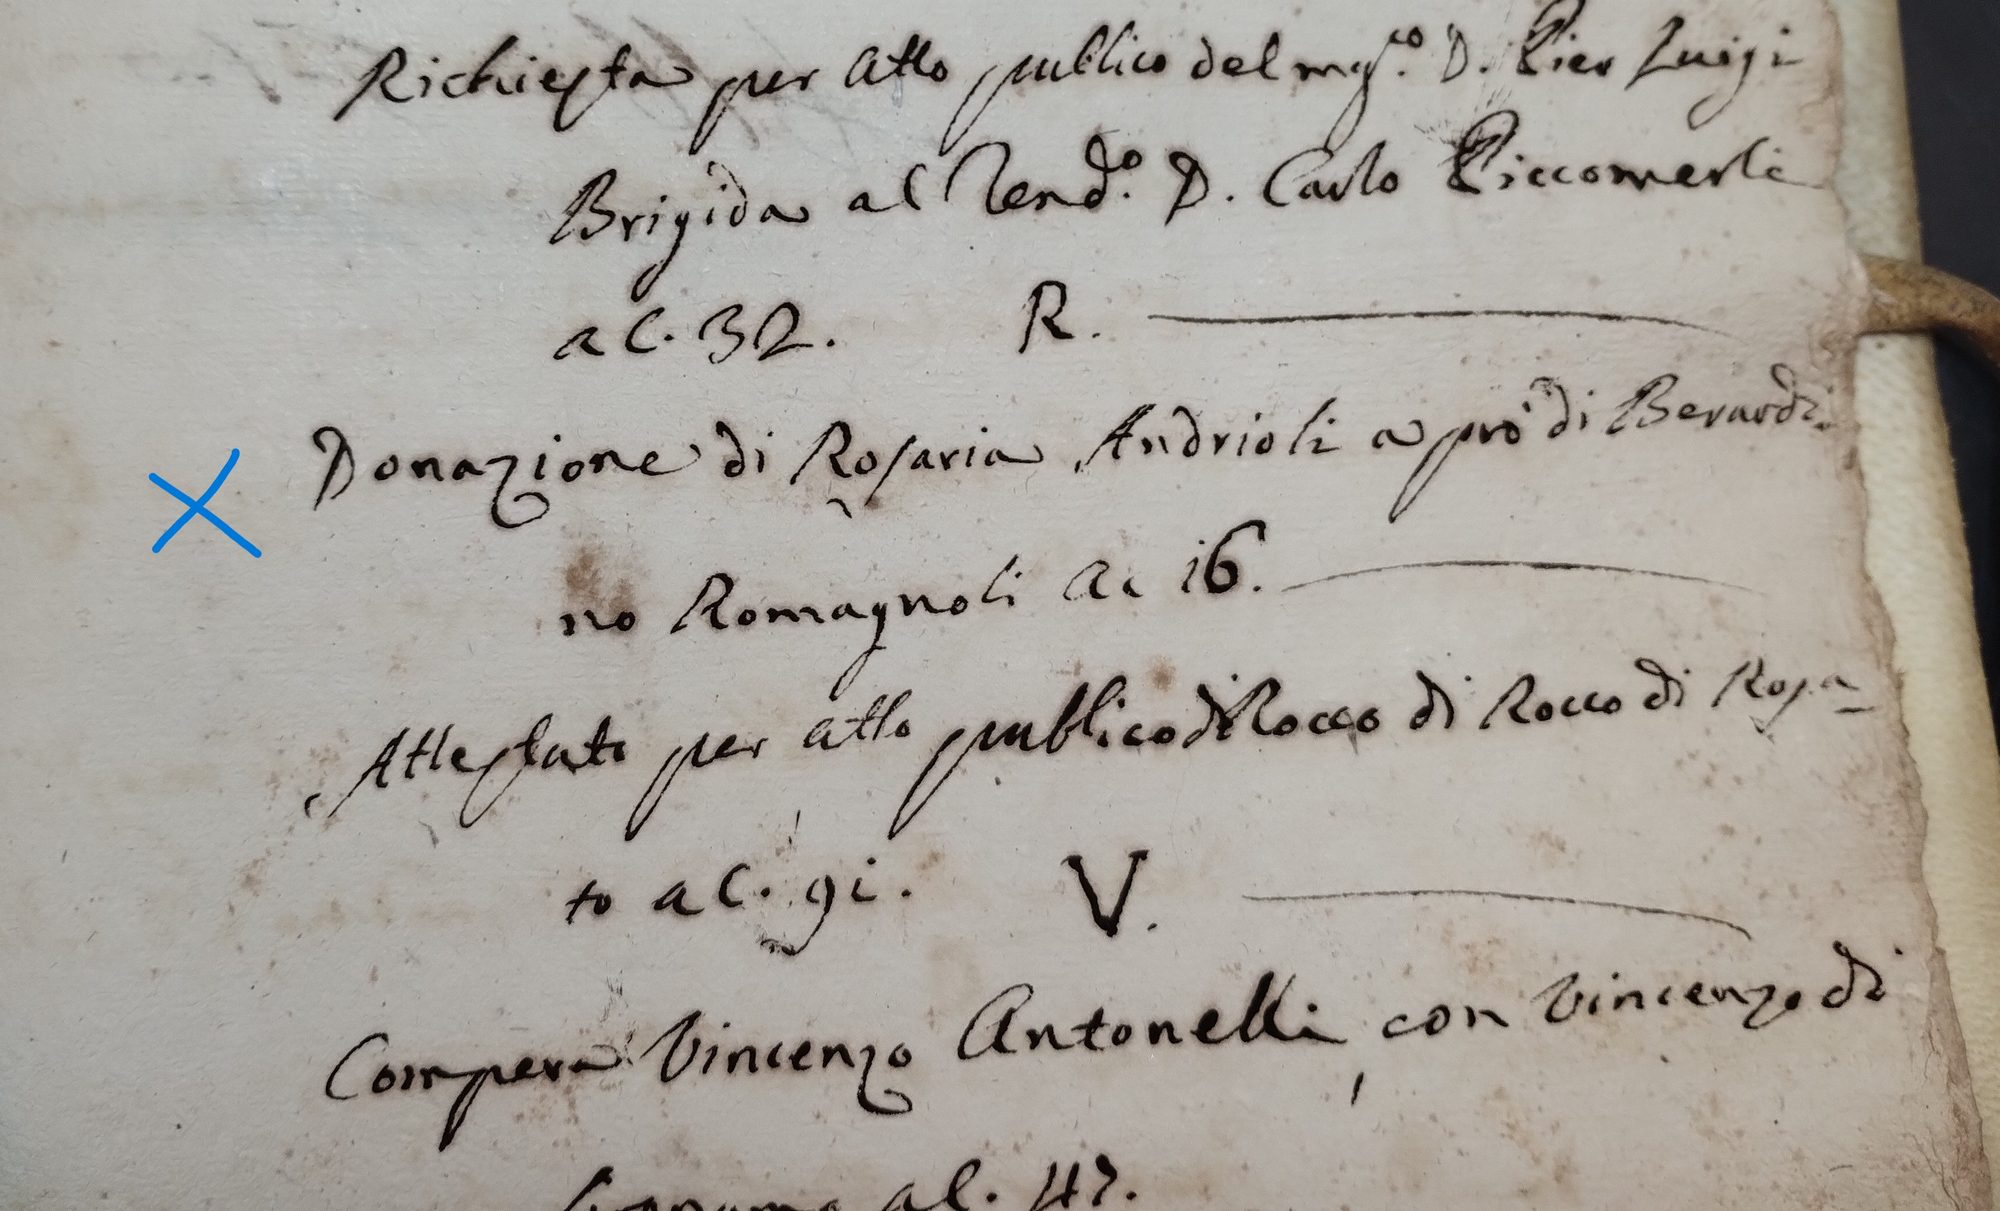 Richiesta per atto publico del mg.co D. Pier Luigi
Brigida al Rend.o D. Carlo Piccomerli
a C. 32. R.
Donazione di Rosaria Andrioli a prò di Berardi
no Romagnoli a c 16.
Attestato per atto publico di Rocco di Rocco di Rosa
to a C. 91. V.
Compera Vincenzo Antonelli, con Vincenzo di
a C. 47.